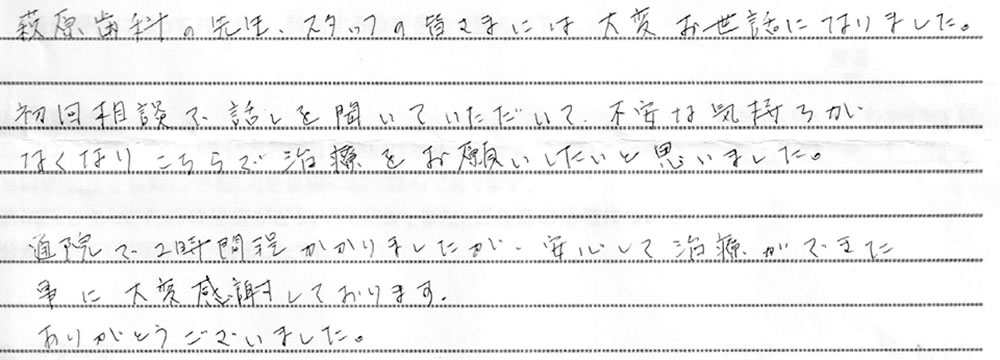 萩原歯科の先生、スタッフの皆さまには大変お世話になりました。
初回相談で話しを聞いていただいて、不安な気持ちが
なくなりこちらで治療をお願いしたいと思いました。
通院で2時間程かかりましたが、安心して治療ができた
事に大変感謝しております。
ありがとうございました。